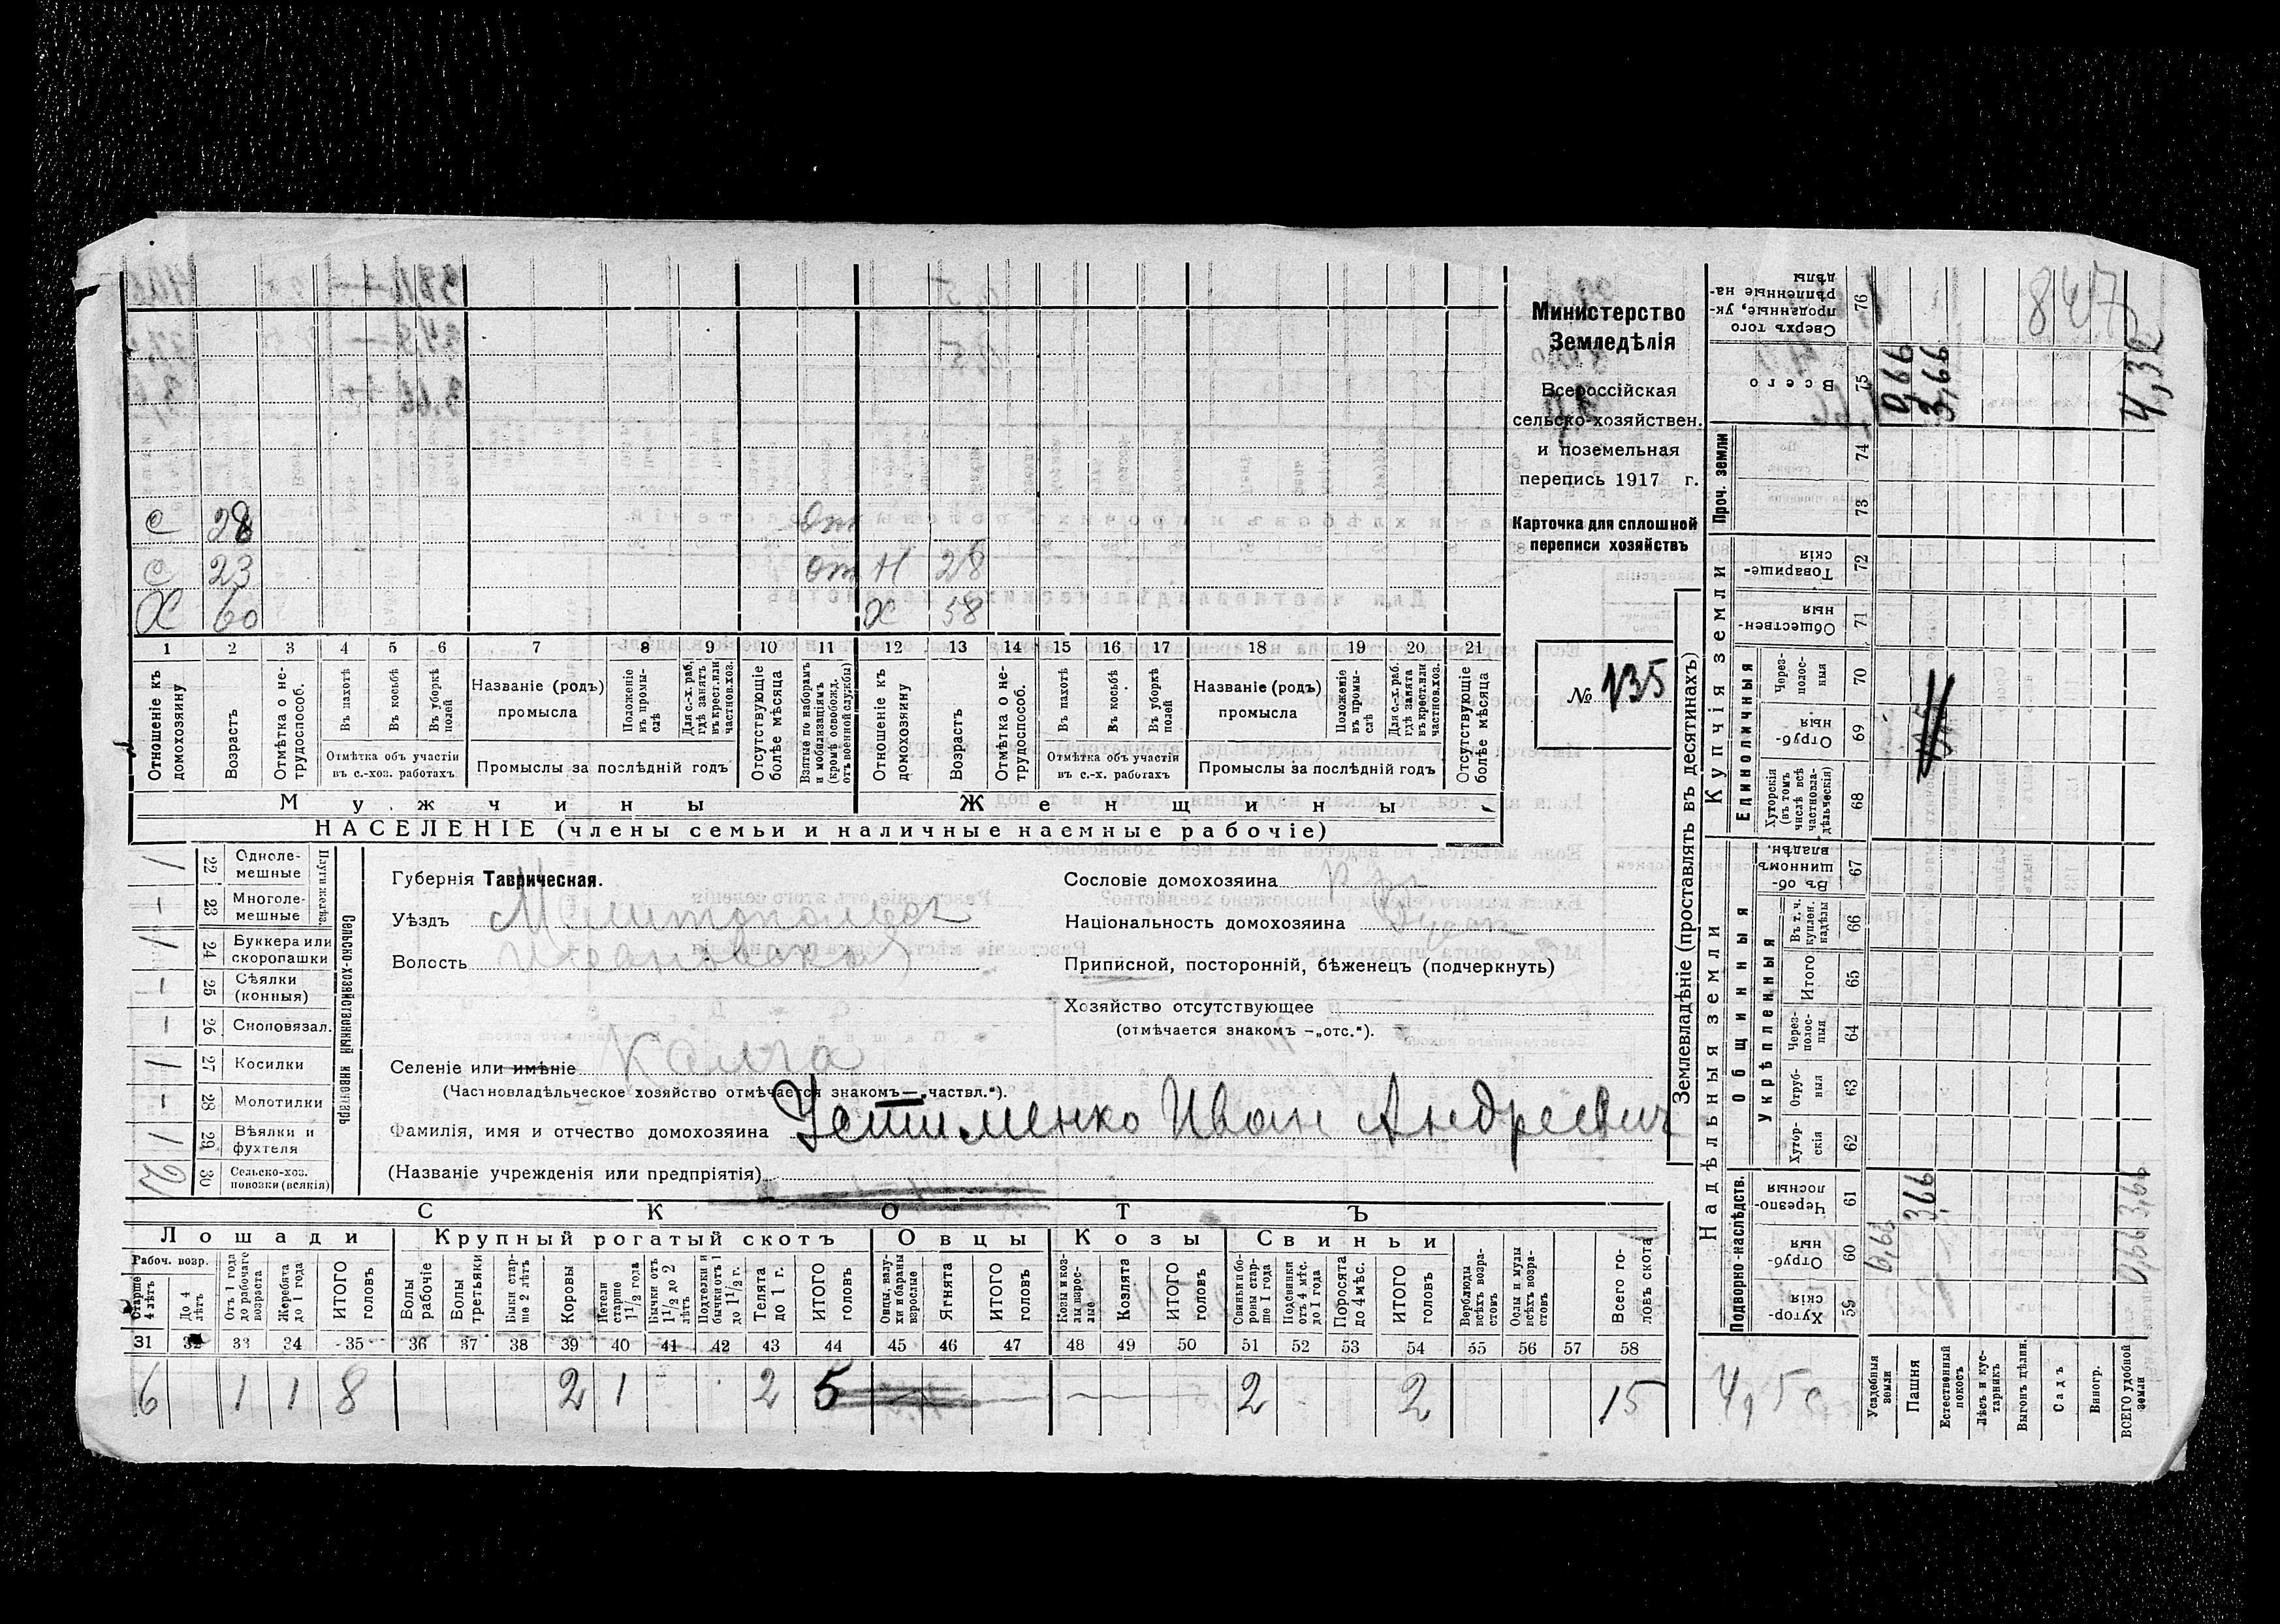 Министерство
Земледѣлія
Всероссійская
сельско-хозяйствен.
и поземельная
перепись 1917 г.
Карточка для сплошной
переписи хозяйствъ
№ 135
С 28 От
С 23 от Н 28
Х 60 Х 58
1 2 3 4 5 6 7 8 9 10 11 12 13 14 15 16 17 18 19 20 21
Отношеніе къ домохозяину
Возрастъ
Отмѣтка о не-трудоспособ.
Въ пахотѣ
Въ косьбѣ
Въ уборкѣ полей
Отмѣтка объ участіи
въ с.-хоз. работахъ.
Названіе (родъ)
промысла
Положеніе въ промы-слѣ
Для с.-х. раб. гдѣ занятъ въ крест. или частнов. хоз.
Промыслы за послѣдній годъ
Отсутствующіе болѣе мѣсяца
Взятые по наборамъ и мобилизаціямъ (кромѣ освобожд. отъ военной службы)
Отношеніе къ домохозяину
Возрастъ
Отмѣтка о не-трудоспособ.
Въ пахотѣ
Въ косьбѣ
Въ уборкѣ полей
Отмѣтка объ участіи
въ с.-х. работахъ
Названіе (родъ)
промысла
Положеніе въ промы-слѣ
Для с.-х. раб. гдѣ занята въ крест. или частнов. хоз.
Промыслы за послѣдній годъ
Отсутствующіе болѣе мѣсяца
Мужчины Женщины
НАСЕЛЕНІЕ (члены семьи и наличные наемные рабочіе)
Сельско-хозяйственный инвентарь
Плуги желѣз.
1 22 Одноле-мешные
— 23 Многоле-мешные
1 24 Буккера или скоропашки
— 25 Сѣялки (конныя)
— 26 Сноповязал.
1 27 Косилки
— 28 Молотилки
1 29 Вѣялки и фухтеля
2 30 Сельско-хоз. повозки (всякія)
Губернія Таврическая.
Уѣздъ
Волость
Селеніе или имѣніе
(Частновладѣльческое хозяйство отмѣчается знакомъ—„частвл.“).
Фамилія, имя и отчество домохозяина Устименко Иван Андреевич
(Названіе учрежденія или предпріятія)
Сословіе домохозяина
Національность домохозяина
Приписной, посторонній, бѣженецъ (подчеркнуть)
Хозяйство отсутствующее
(отмѣчается знакомъ —„отс.“).
СКОТЪ
Лошади Крупный рогатый скотъ Овцы Козы Свиньи
Рабоч. возр.
Старше 4 лѣтъ
До 4 лѣтъ
Отъ 1 года до рабочаго возраста
Жеребята до 1 года
ИТОГО головъ
Волы рабочіе
Волы третьяки
Быки стар-ше 2 лѣтъ
Коровы
Нетели старше 1 1/2 года
Бычки отъ 1 1/2 до 2 лѣтъ
Подтелки и бычки отъ 1 до 1 1/2 г.
Телята до 1 г.
ИТОГО головъ
Овцы, валу-хи и бараны взрослые
Ягнята
ИТОГО головъ
Козы и коз-лы взрос-лые
Козлята
ИТОГО головъ
Свиньи и бо-ровы стар-ше 1 года
Подсвинки отъ 4 мѣс. до 1 года
Поросята до 4 мѣс.
ИТОГО головъ
Верблюды всѣхъ возра-стовъ
Ослы и мулы всѣхъ возра-стовъ
Всего го-ловъ скота
31 32 33 34 35 36 37 38 39 40 41 42 43 44 45 46 47 48 49 50 51 52 53 54 55 56 57 58
6 1 1 8 2 1 2 5 2 2 15
Землевладѣніе (проставлять въ десятинахъ)
Надѣльныя земли
Купчія земли
Проч. земли
Подворно-наслѣдств.
Общинныя
Укрѣпленныя
Единоличныя
Сверхъ того проданные, ук-рѣпленные на-дѣлы 76
847
Всего 75 0,66 3,66 4,32
74
73
Товарище-скія 72
Обществен-ныя 71
Через-полос-ныя 70
Отруб-ныя 69
Хуторскія (въ томъ числѣ всѣ частновла-дѣльческія) 68
Въ об-щинномъ владѣн. 67
Въ т. ч. куплен. надѣлы 66
Итого 65
Через-полос-ныя 64
Отруб-ныя 63
Хутор-скія 62
Черезпо-лосныя 61 3,66 3,66
Отруб-ныя 60 0,66 0,66
Хутор-скія 59
Усадебныя земли
Пашня
Естественный покосъ
Лѣсъ и кус-тарникъ
Выгонъ цѣлин.
Садъ
Виногр.
ВСЕГО удобной земли